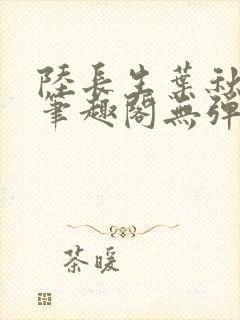 陸長生葉秋
筆趣閣無彈
茶暖